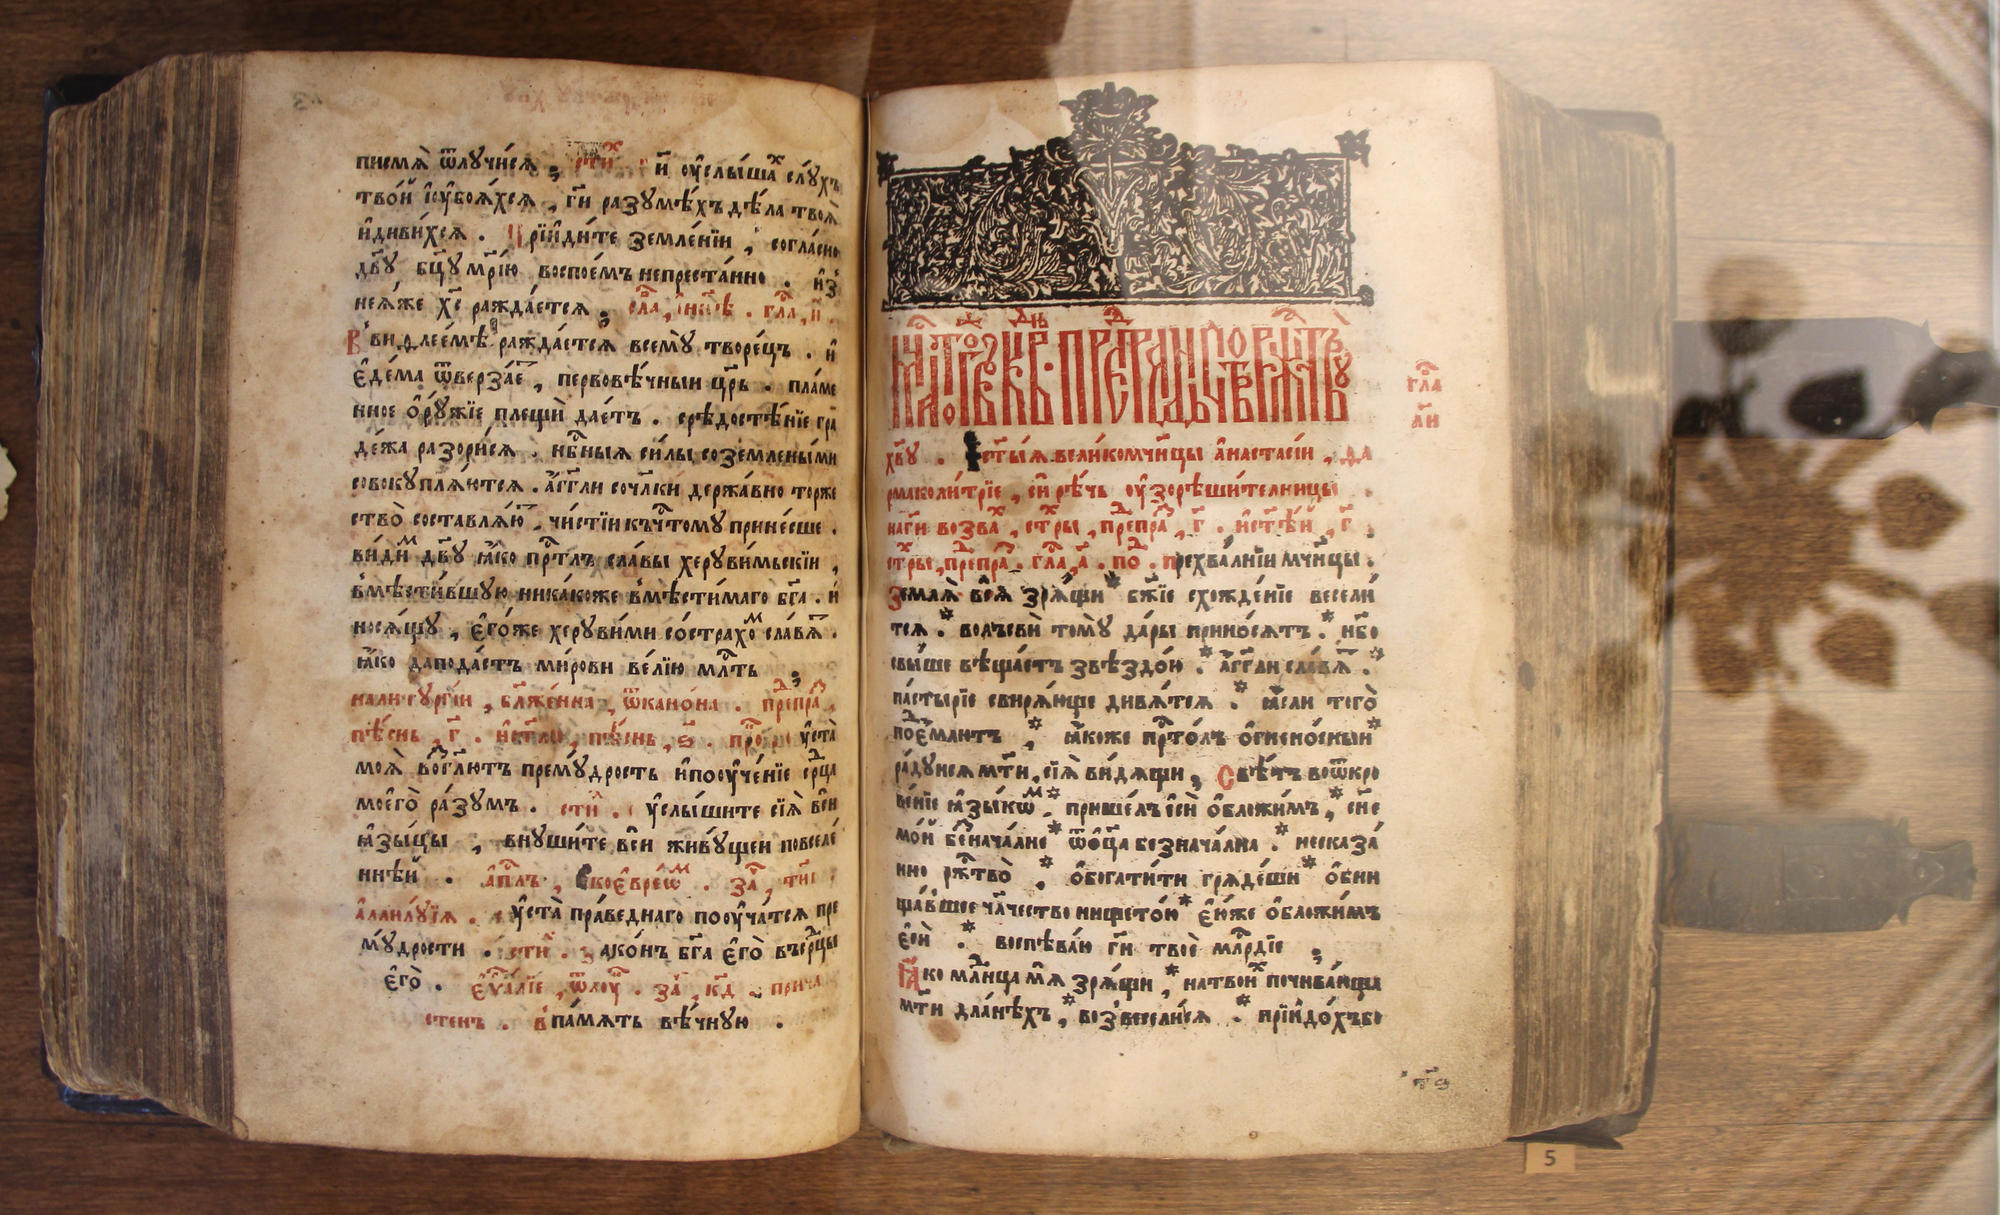 писмѧ̀ ѿлучи́сѧ , сти̑х г҃и ѹ҆слы́шах слу́хъ
тво́й і҆ѹ҆боѧ́хсѧ , г҃и разумѣ́хъ дѣ́ла твоѧ̀
и҆диви́хсѧ . Прїи҆ди́те земле́нїи , согла́сно
дв҃у бц҃у мр҃і́ю воспое́мъ непреста́нно . и҆з
неѧ́же хс҃ ражда́етсѧ , сла , и҆ нн҃ѣ . гла , и҃ .
Ввиѳлее́мѣ ражда́етсѧ всемꙋ̀ творе́цъ . и҆
є҆де́ма ѿверза́е , первовѣ́чныи цр҃ь . пла́ме
нное ѻ҆рꙋ́жїе плещѝ дае́тъ . срѣдостѣ́нїе гра
де́жа разори́сѧ . нб҃ныѧ си́лы со земле́ными
совокуплѧ́ютсѧ . а҆́гг҃ли со чл҃ки держа́вно торже
ство̀ составлѧ́ю , чи́стїи къ чтому принéсше .
ви́дим дв҃у ꙗ҆́ко прⷭ҇тлъ сла́вы херуви́мьскїи ,
вмѣсти́вшую никакоже вмѣсти́маго бг҃а . и҆
носѧ́щу , є҆го́же херуви́ми со стра́хом сла́вѧ .
ꙗ҆́ко да пода́стъ ми́рови ве́лїю млⷭ҇ть
на литургі́и , бл҃же́нна , ѿ кано́на . препра ,
пѣ́снь , г҃ . и҆ ст҃лю , пѣ́снь , ѕ҃ . про уста̀
моѧ̀ возг҃лютъ прему́дрость и҆ поѹ҆че́нїе срⷣца
моегѡ̀ ра́зумъ . сти . ѹслы́шите сїѧ̀ всѝ
ꙗ҆зы́цы , внуши́те всѝ живу́щеи по вселе́
ннѣ́й . а҆пⷭ҇лъ , ко є҆вре́ѡм . за ,
а҆лилу́їѧ . ѹста̀ пра́веднаго поѹ҆ча́тсѧ пре
мꙋ́дрости . сти . зако́нъ бг҃а є҆гѡ̀ въ срⷣцы
є҆го̀ . є҆ѵⷢ҇а́лїе , ѿ лу . за , кд . прича
стенъ . в па́мѧть вѣ́чную .
гла
а҃и
хв҃у . ст҃ы́ѧ вели́комч҃ницы а҆настасі́и , фа
рмаколи́трїе , си́ рѣ́чь ѹ҆зорѣши́телницы
на г҃и возва́х , стⷯры , препра , г҃ . и҆ ст҃ѣ́й , г҃ ,
стⷯры , препра . гла , а҃ . по . прехва́лнїи мч҃ницы .
Землѧ̀ всѧ̀ зрѧ́щи * бж҃їе схожде́нїе весели́
тсѧ . * волъсвѝ томꙋ̀ да́ры прино́сѧтъ . * нб҃о
свы́ше вѣща́етъ звѣздо́ю * . а҆́гг҃ли сла́вѧ . *
па́стырїе свирѧ́юще дивѧ́тсѧ . * ꙗсли того̀
пое́млютъ , * ꙗ҆́коже прⷭ҇то́лъ ѻ҆гнено́сныи *
ра́дуисѧ мт҃и , сїѧ̀ ви́дѧщи , Свѣ́тъ во ѿкро
ве́нїе ꙗ҆зы́кѡм * , прише́лъ є҆сѝ ѻ҆бложи́мъ , * сн҃е
мо́й безнача́лне * ѿ ѻ҆ц҃а безнача́лна . * несказа́
нно ржⷭ҇тво̀ * . ѻ҆богати́ти грѧде́ши * ѻ҆бни
ща́вшее чл҃чество нището́ю * є҆ю́же ѻ҆бложи́мъ
є҆сѝ . * воспѣва́ю г҃и твоѐ млⷭ҇рдїе ,
Ꙗ҆́ко млⷣнца мѧ̀ зрѧ́щи , * на твои́х почива́юща
мт҃и дла́нѣхъ , * возвесели́сѧ . * прїидо́хъ бо
т҃ѳ
5